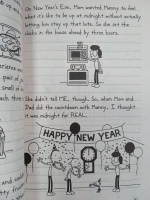 On New Year's Eve, Mom wanted Manny to feel
what it's like to be up at midnight without actually
letting him stay up that late. So she set the
clocks in the house ahead by three hours.
She didn't tell ME, though. So when Mom and
Dad did the countdown with Manny, I thought
it was midnight for REAL.
HAPPY NEW YEAR